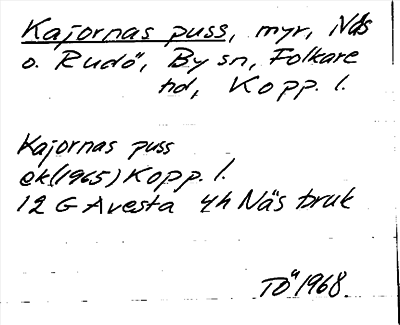 Kajornas puss, myr, Näs
o. Rudö, By sn, Folkare
hd, Kopp. l.
Kajornas puss
ek(1965) Kopp. l.
12 G Avesta 4h Näs bruk
TÖ 1968